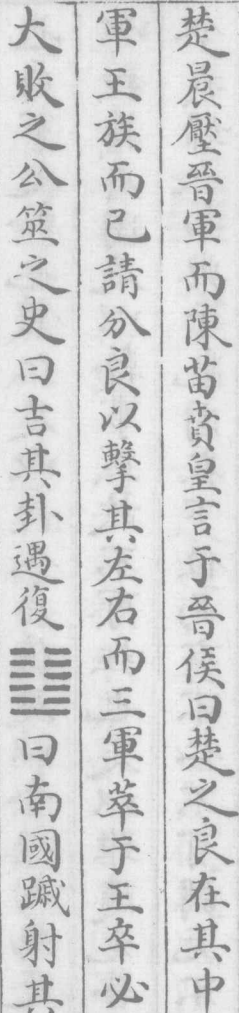 楚晨壓晉軍而陳苗賁皇言于晉侯曰楚之良在其中
軍王族而已請分良以擊其左右而三軍萃于王卒必
大敗之公筮之史曰吉其卦遇復䷗曰南國蹙射其